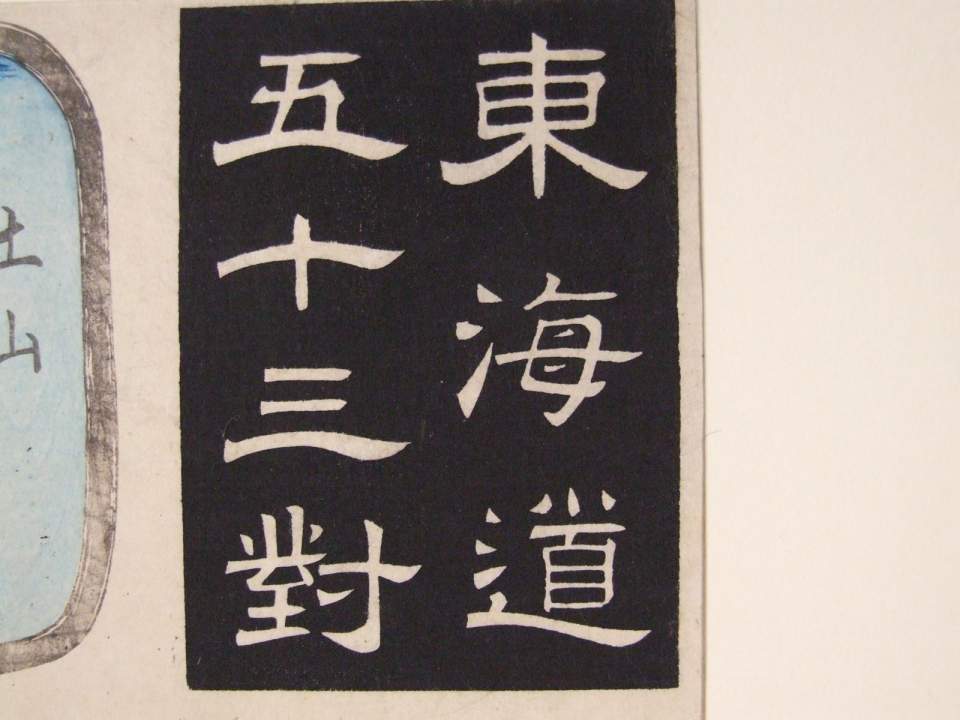 東海道
五十三對
土山